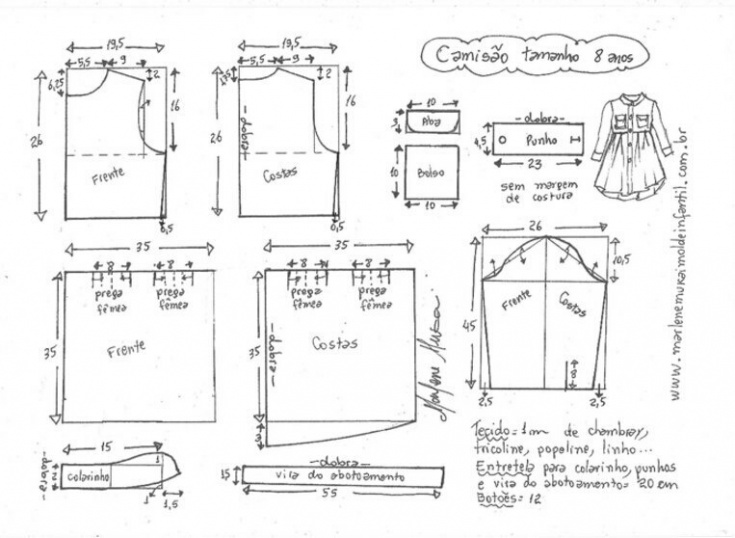 Camisão tamanho 8 anos
19,5
5,5 9
6,25
2
16
26
Frente
0,5
19,5
5,5 9
2
16
26
dobra
Costas
0,5
10
Aba
10
Bolso
10
dobra
4,5
Punho
23
sem margem
de costura
www.marlenemukaimoldeinfantil.com.br
35
8 8
prega prega
fêmea fêmea
35
Frente
35
8 8
prega prega
fêmea fêmea
35
dobra
Costas
Marlene Mukai
26
10,5
Frente
Costas
45
8
2,5 2,5
15
dobra
colarinho
1
1
1,5
dobra
vira do abotoamento
55
Tecido = 1m de chambray,
tricoline, popeline, linho...
Entretela para colarinho, punhos
e vira do abotoamento = 20 cm
Botões = 12